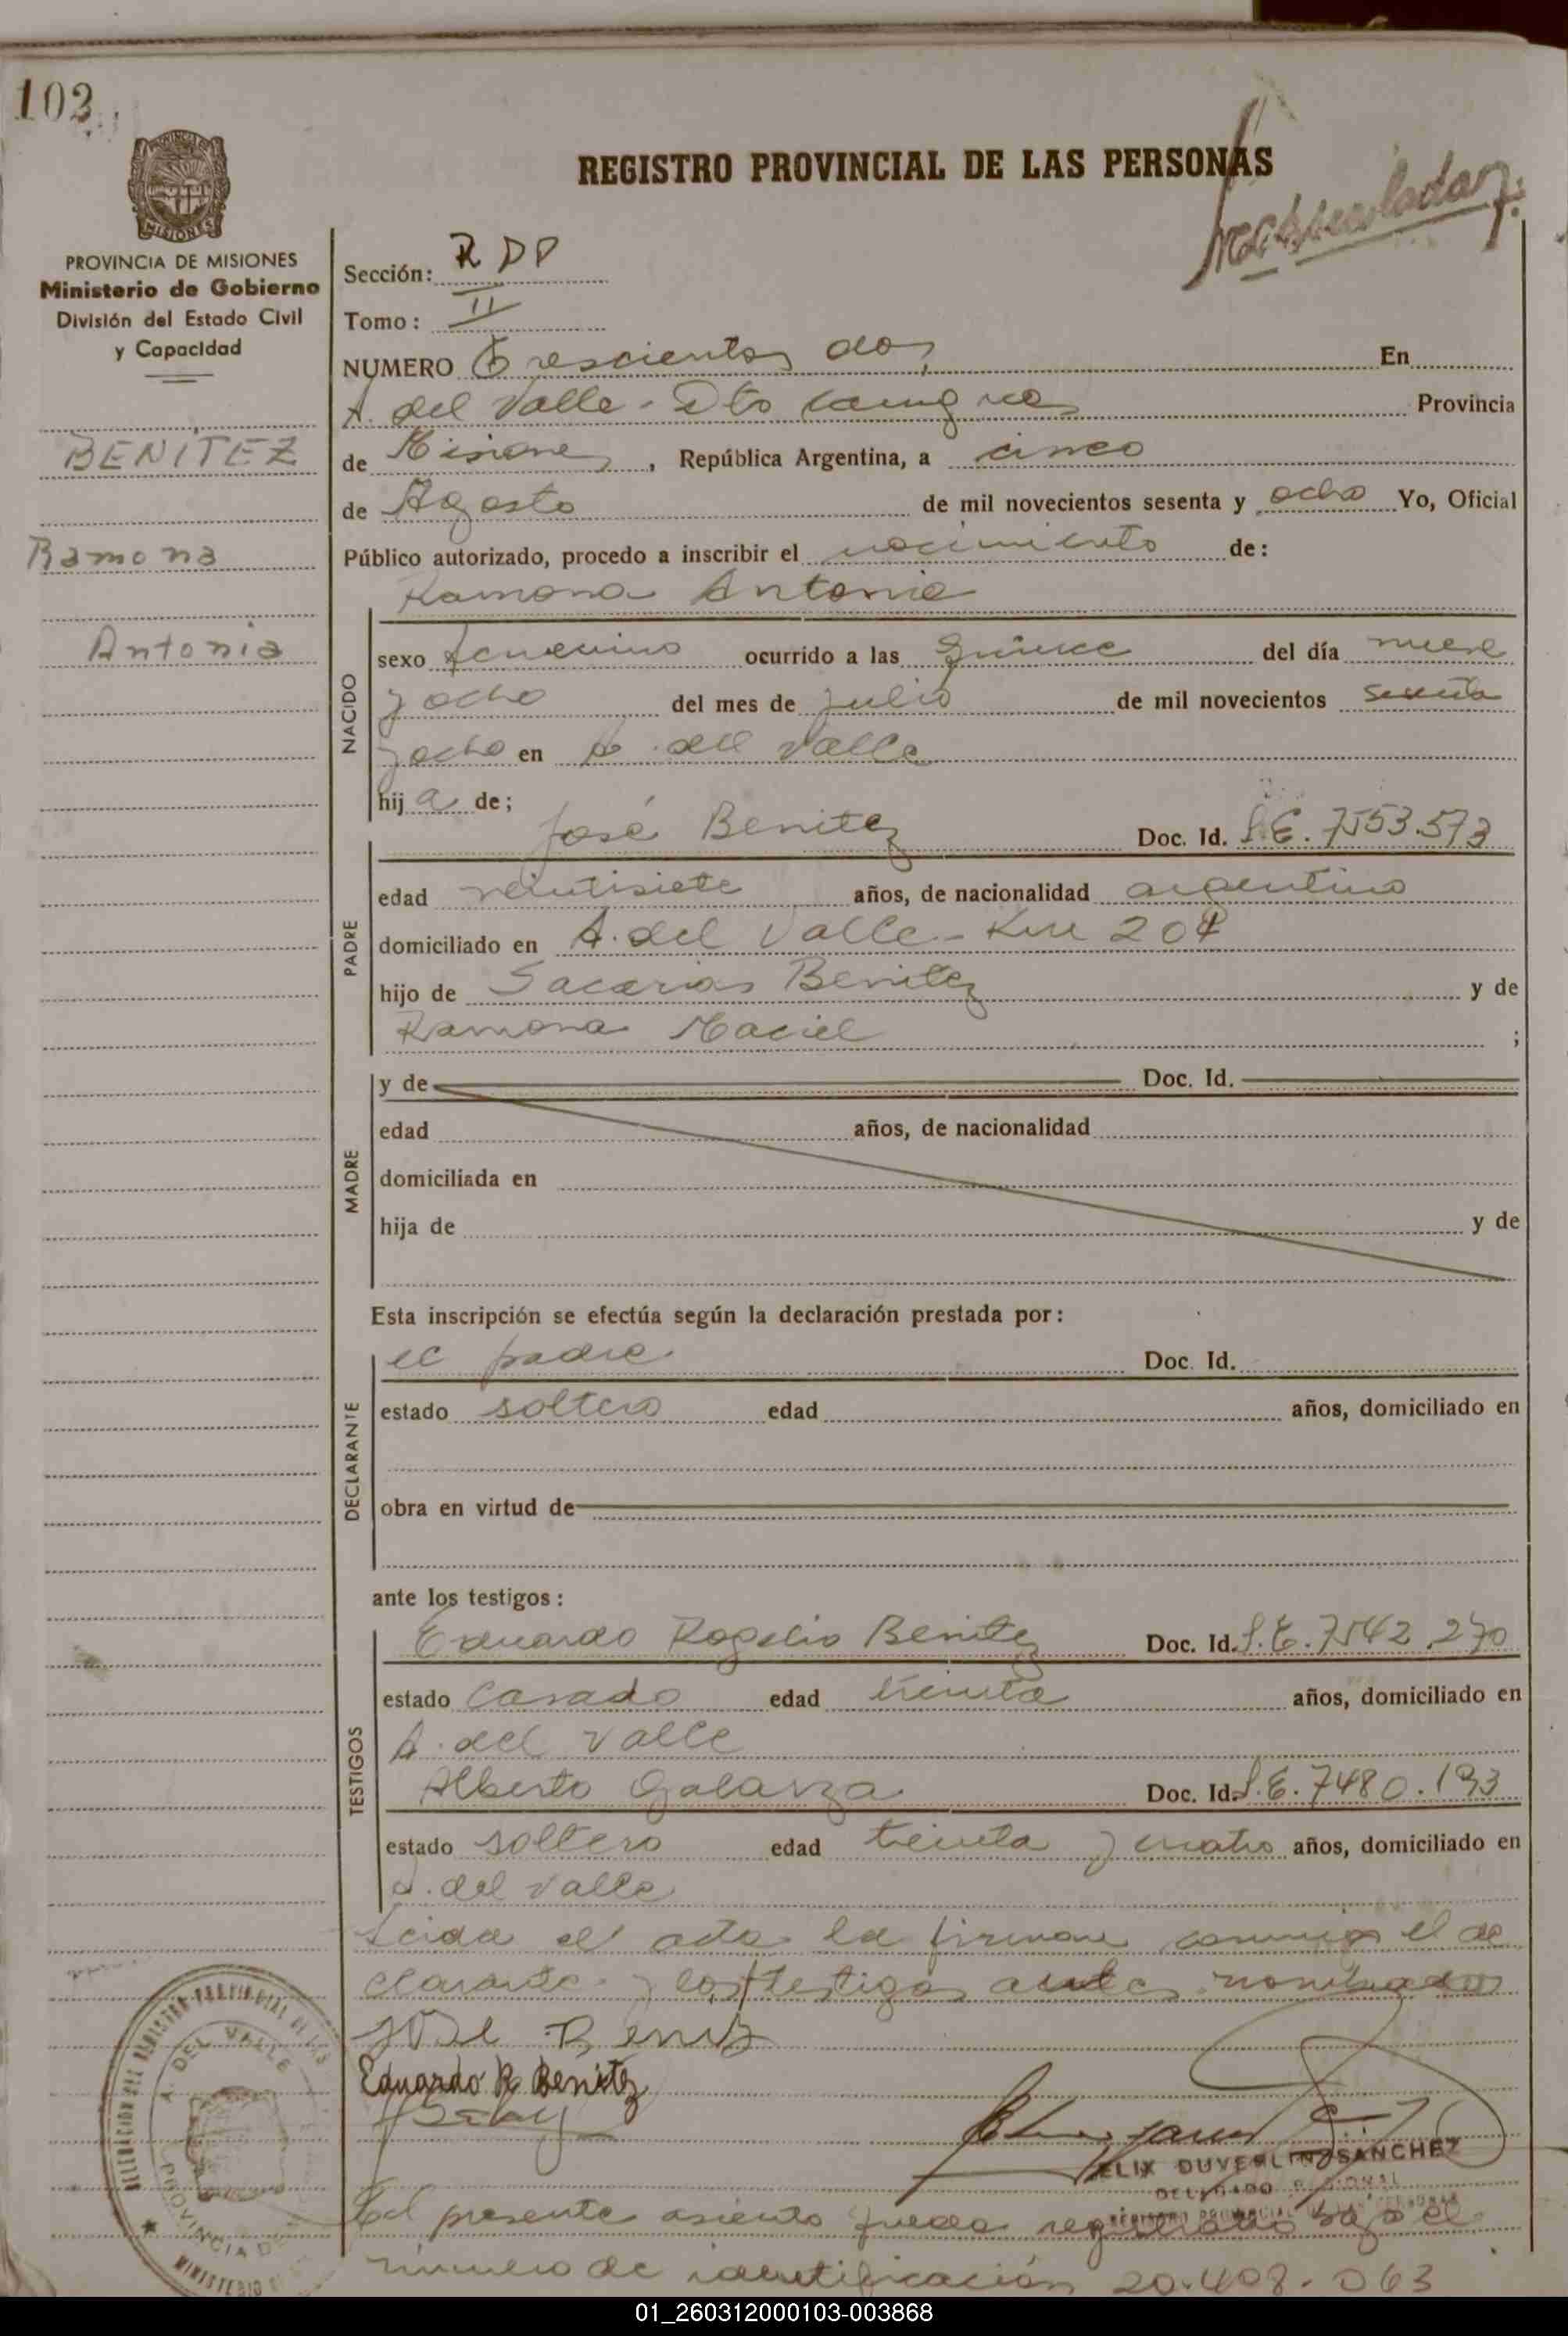 102
PROVINCIA DE MISIONES
Ministerio de Gobierno
División del Estado Civil
y Capacidad
BENÍTEZ
Ramona
Antonia
REGISTRO PROVINCIAL DE LAS PERSONAS
Sección:
Tomo: II
NUMERO Trescientos dos, En
A. del Valle - Dto Provincia
de Misiones, República Argentina, a cinco
de Agosto de mil novecientos sesenta y ocho Yo, Oficial
Público autorizado, procedo a inscribir el nacimiento de:
Ramona Antonia
NACIDO
sexo femenino ocurrido a las quince del día
y ocho del mes de julio de mil novecientos sesenta
y ocho en A. del Valle
hij a de;
José Benitez Doc. Id. L.E. 7553.573
PADRE
edad veintisiete años, de nacionalidad argentino
domiciliado en A. del Valle - Km 20
hijo de Sacarias Benitez y de
Ramona Maciel ;
MADRE
y de Doc. Id.
edad años, de nacionalidad
domiciliada en
hija de y de
Esta inscripción se efectúa según la declaración prestada por:
DECLARANTE
el padre Doc. Id.
estado soltero edad años, domiciliado en
obra en virtud de
ante los testigos:
TESTIGOS
Eduardo Rogelio Benitez Doc. Id. L.E. 7542.270
estado casado edad treinta años, domiciliado en
A. del Valle
Alberto Galarza Doc. Id. L.E. 7480.193
estado soltero edad treinta y cuatro años, domiciliado en
A. del Valle
Leida el acta la firman conmigo el de
clarante y los testigos antes nombrados
José Benitez
Eduardo R. Benítez
FELIX DUVERLINO SANCHEZ
A. DEL VALLE
PROVINCIA DE
El presente asiento queda registrado bajo el
número de identificación 20.408.063
01_260312000103-003868